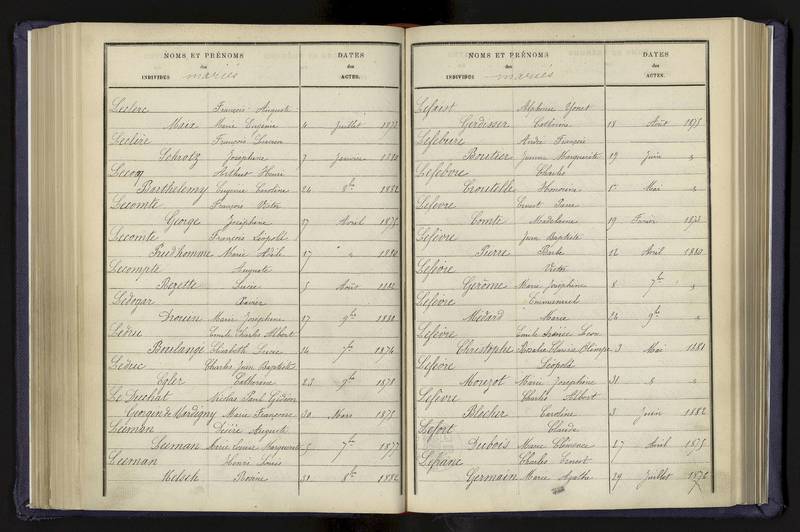 NOMS ET PRÉNOMS
des
INDIVIDUS mariés
DATES
des
ACTES.
Leclerc François Auguste
Maix Marie Eugénie 4 Juillet 1873
Leclère François Lucien
Schratz Joséphine 7 Janvier 1880
Lecoq Arthur Henri
Barthelemy Eugénie Caroline 24 8bre 1882
Lecomte François Victor
George Joséphine 17 Avril 1875
Lecomte François Léopold
Prudhomme Marie 17 " " 1880
Lecompte Auguste
Berette Lucie 5 Août 1882
Ledogar Xavier
Drouin Marie Joséphine 17 9bre 1880
Ledric Emile Charles Albert
Boulangé Elisabeth 14 7bre 1874
Ledric Charles Jean Baptiste
Egler Catherine 23 9bre 1878
Le Duchat Nicolas Paul Gédéon
Georgin de Mardigny Marie Françoise 30 Mars 1875
Leeman Désiré Auguste
Leeman Marie Louise Marguerite 5 7bre 1877
Leeman Henri Louis
Kelsch Rosine 31 8bre 1882
NOMS ET PRÉNOMS
des
INDIVIDUS mariés
DATES
des
ACTES.
Alphonse
Gerdesser Catherine 18 Août 1875
Lefebure André François
Boutier Jeanne Marguerite 19 Juin "
Lefebvre Charles
Croutelle Honorine Mai "
Lefevre Ernest
Comte Madeleine 19 Février 1873
Lefèvre Jean Baptiste
Pierre Barbe 12 Avril 1880
Lefèvre Victor
Gerôme Marie Joséphine 8 7bre "
Lefèvre Emmanuel
Médard Marie 24 9bre "
Lefèvre Emile Léon
Christophe Rosalie Clarisse Olimpe 3 Mai 1881
Lefèvre Léopold
Morizot Marie Joséphine 31 " "
Lefèvre Charles Albert
Blocher Caroline 3 Juin 1882
Lefort Claude
Dubois Marie Clémence 27 Avril 1875
Lefranc Charles Ernest
Germain Marie Agathe 29 Juillet 1876